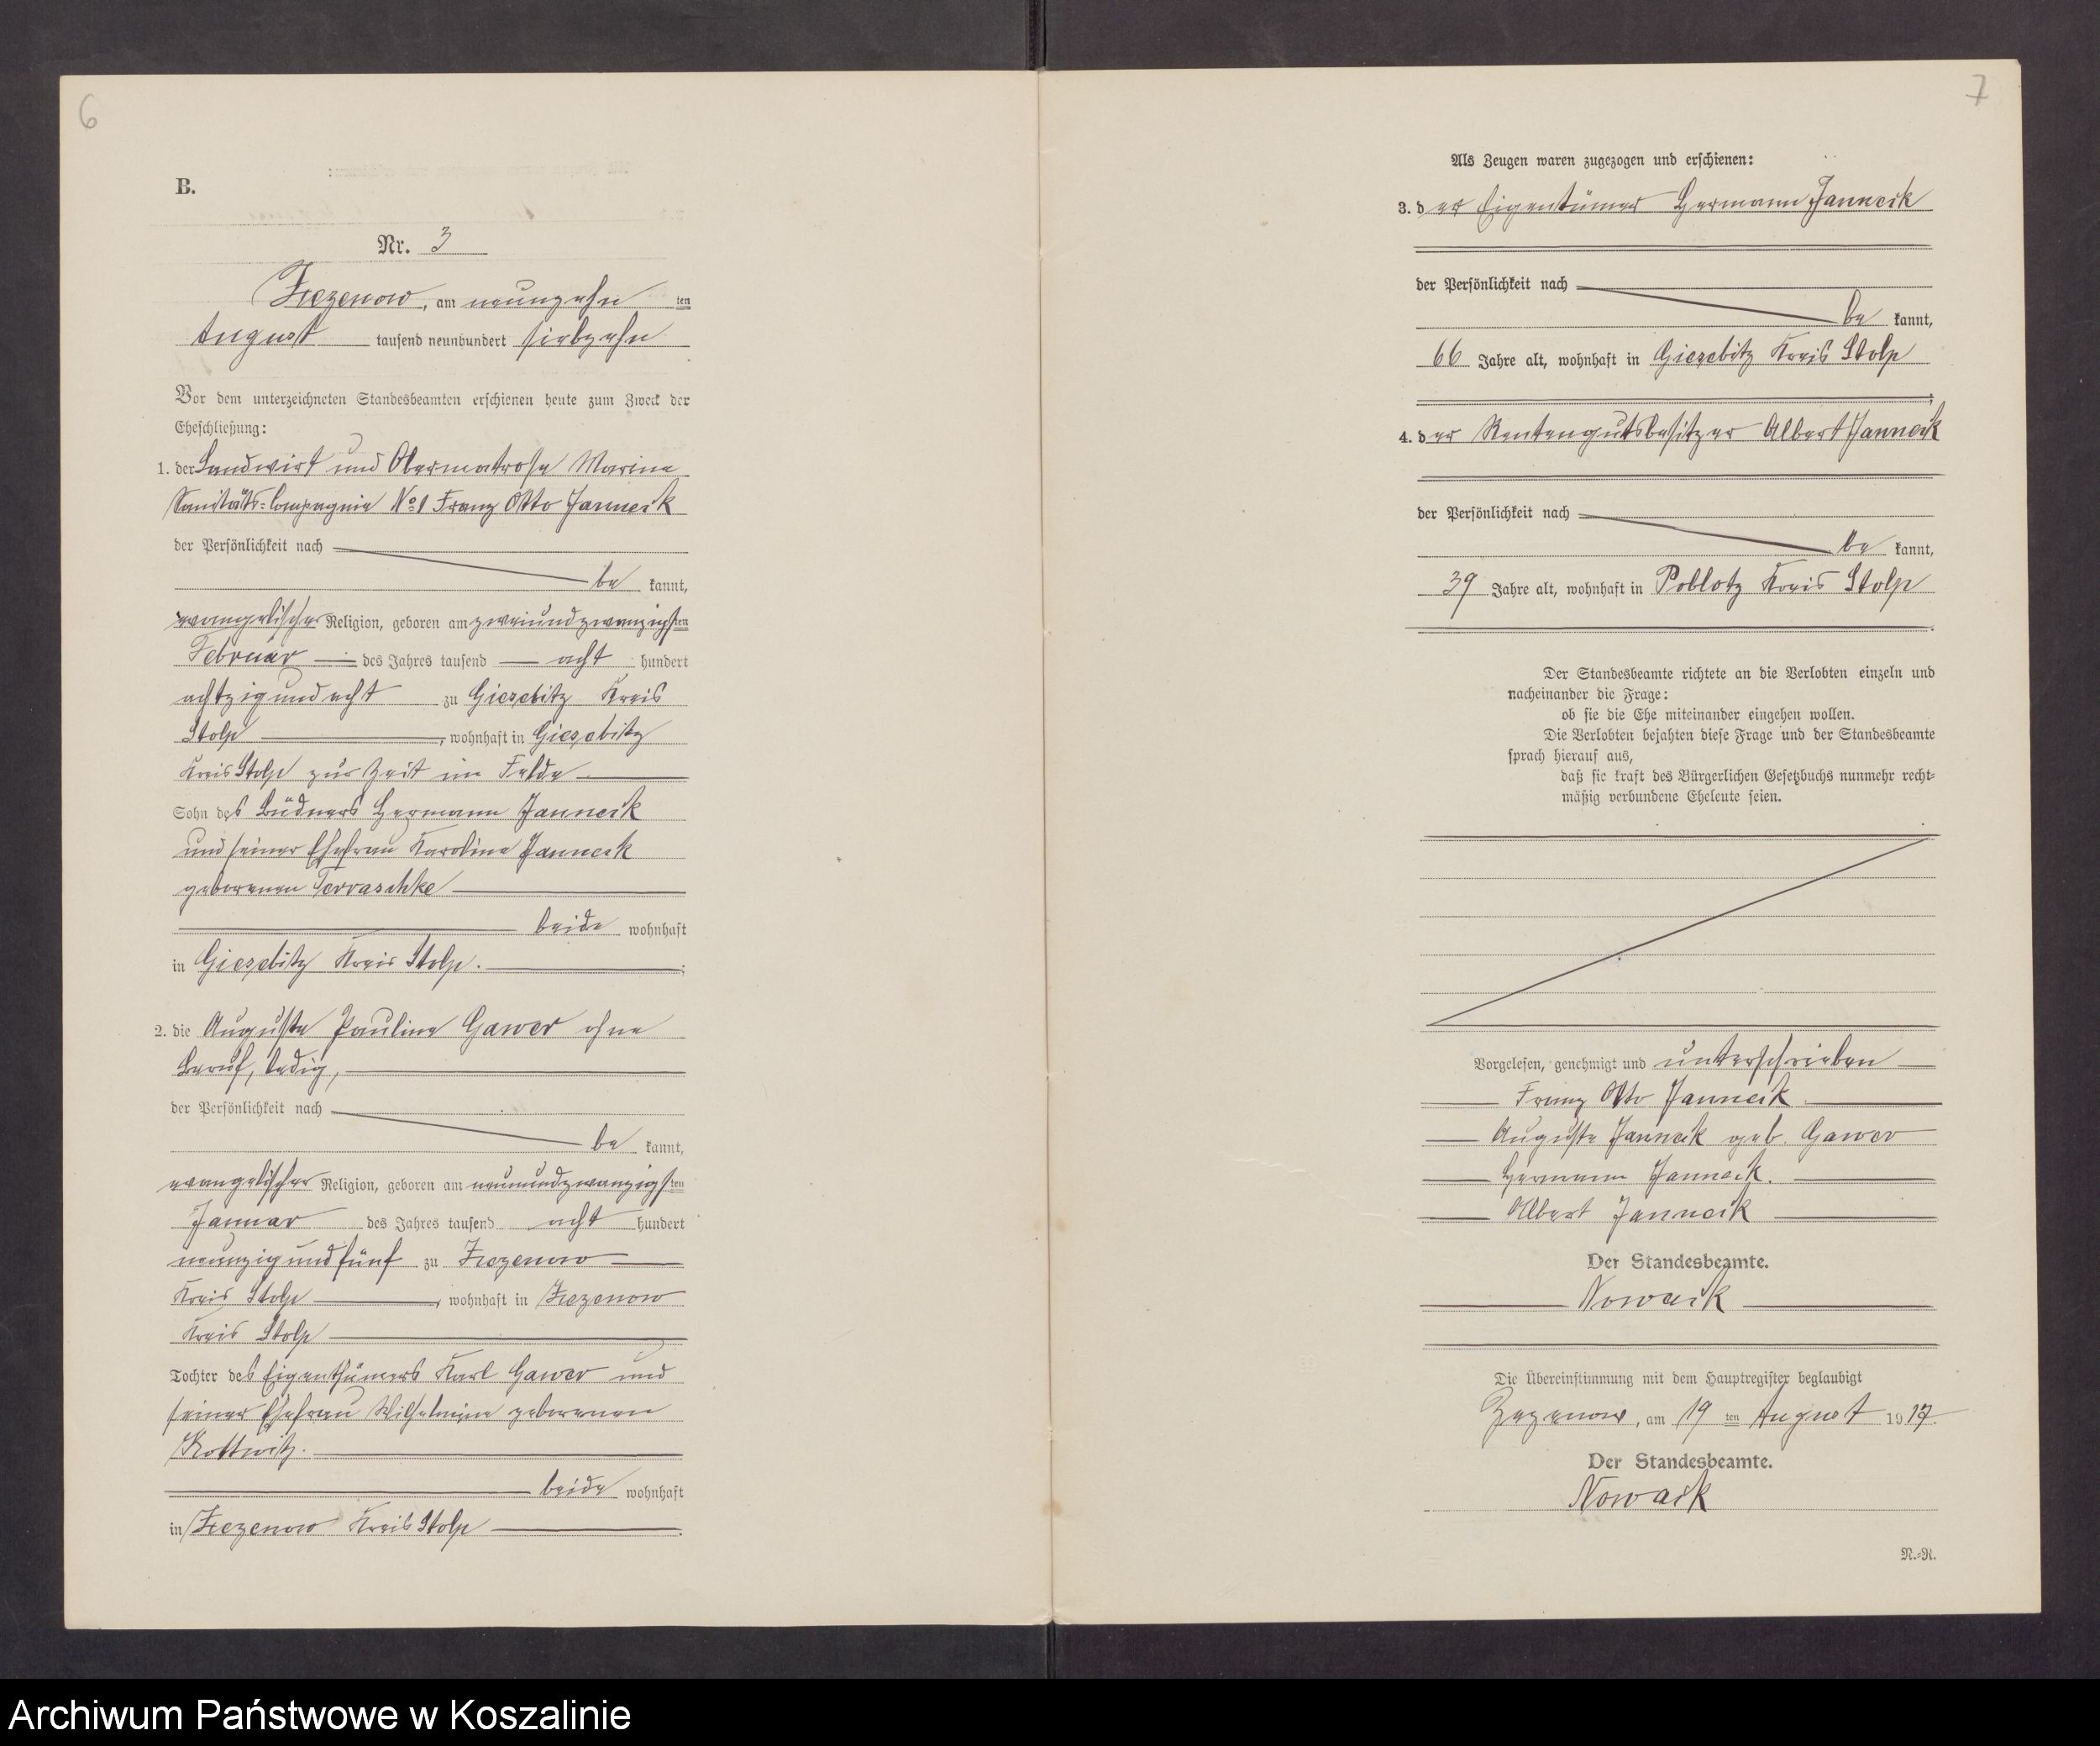 6
B.
Nr. 3
Zezenow, am neunzehn ten
August tausend neunhundert siebzehn
Vor dem unterzeichneten Standesbeamten erschienen heute zum Zweck der
Eheschließung:
1. der Landwirt und Obermatrose Marine
Sanitäts-Compagnie No 1 Franz Otto Janneck
der Persönlichkeit nach
be kannt,
evangelischer Religion, geboren am zweiundzwanzigsten
Februar des Jahres tausend acht hundert
achtzig und acht zu Giesebitz Kreis
Stolp, wohnhaft in Giesebitz
Kreis Stolp zur Zeit im Felde
Sohn des Büdners Hermann Janneck
und seiner Ehefrau Karoline Janneck
geborenen Terraschke
beide wohnhaft
in Giesebitz Kreis Stolp.;
2. die Auguste Pauline Gawer ohne
Beruf, ledig,
der Persönlichkeit nach
be kannt,
evangelischer Religion, geboren am neunundzwanzigsten
Januar des Jahres tausend acht hundert
neunzig und fünf zu Zezenow
Kreis Stolp, wohnhaft in Zezenow
Kreis Stolp
Tochter des Eigenthümers Karl Gawer und
seiner Ehefrau Wilhelmine geborenen
Kottwitz.
beide wohnhaft
in Zezenow Kreis Stolp.
7
Als Zeugen waren zugezogen und erschienen:
3. der Eigentümer Hermann Janneck
der Persönlichkeit nach
be kannt,
66 Jahre alt, wohnhaft in Giesebitz Kreis Stolp
;
4. der Rentengutsbesitzer Albert Janneck
der Persönlichkeit nach
be kannt,
39 Jahre alt, wohnhaft in Poblotz Kreis Stolp
.
Der Standesbeamte richtete an die Verlobten einzeln und
nacheinander die Frage:
ob sie die Ehe miteinander eingehen wollen.
Die Verlobten bejahten diese Frage und der Standesbeamte
sprach hierauf aus,
daß sie kraft des Bürgerlichen Gesetzbuchs nunmehr recht-
mäßig verbundene Eheleute seien.
Vorgelesen, genehmigt und unterschrieben
Franz Otto Janneck
Auguste Janneck geb. Gawer
Hermann Janneck.
Albert Janneck
Der Standesbeamte.
Nowack
Die Übereinstimmung mit dem Hauptregister beglaubigt
Zezenow, am 19 ten August 1917.
Der Standesbeamte.
Nowack
N.-R.
Archiwum Państwowe w Koszalinie